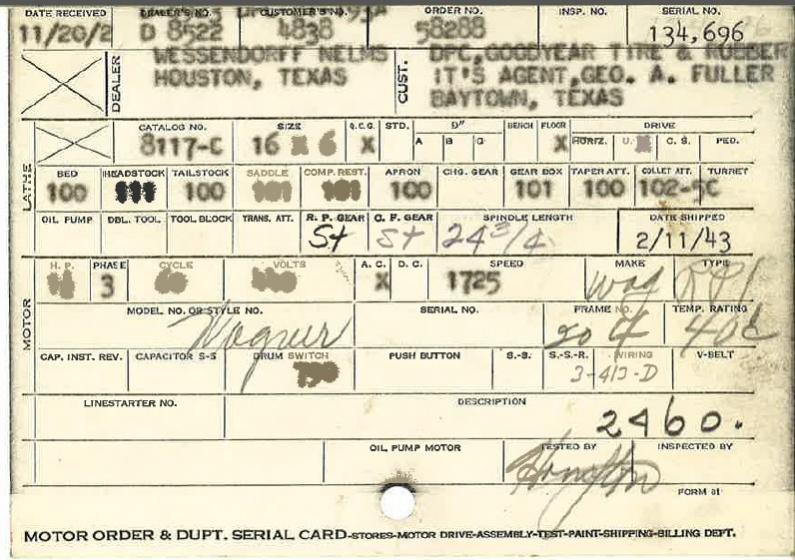 DATE RECEIVED DEALER'S NO. CUSTOMER'S NO. ORDER NO. INSP. NO. SERIAL NO.
11/20/2 D 8522 4838 58288 134,696
DEALER WESSENDORFF NELMS CUST. DPC,GOODYEAR TIRE & RUBBER
HOUSTON, TEXAS IT'S AGENT,GEO. A. FULLER
BAYTOWN, TEXAS
LATHE
CATALOG NO. SIZE Q.C.G. STD. D" BENCH FLOOR DRIVE
8117-C 16 X 6 X A B G X HORIZ. U. C. S. PED.
BED HEADSTOCK TAILSTOCK SADDLE COMP. REST. APRON CHG. GEAR GEAR BOX TAPER ATT. COLLET ATT. TURRET
100 100 101 101 100 101 100 102-5C
OIL PUMP DBL. TOOL. TOOL BLOCK TRANS. ATT. R. P. GEAR C. F. GEAR SPINDLE LENGTH DATE SHIPPED
St St 24 3/4 2/11/43
MOTOR
H. P. PHASE CYCLE VOLTS A. C. D. C. SPEED MAKE TYPE
3 60 X 1725 Wag
MODEL NO. OR STYLE NO. SERIAL NO. FRAME NO. TEMP. RATING
Wagner 204 40c
CAP. INST. REV. CAPACITOR S-S DRUM SWITCH PUSH BUTTON S.-S. S.-S.-R. WIRING V-BELT
3-413-D
LINESTARTER NO. DESCRIPTION
2460.
OIL PUMP MOTOR TESTED BY INSPECTED BY
FORM 81
MOTOR ORDER & DUPT. SERIAL CARD-STORES-MOTOR DRIVE-ASSEMBLY-TEST-PAINT-SHIPPING-BILLING DEPT.